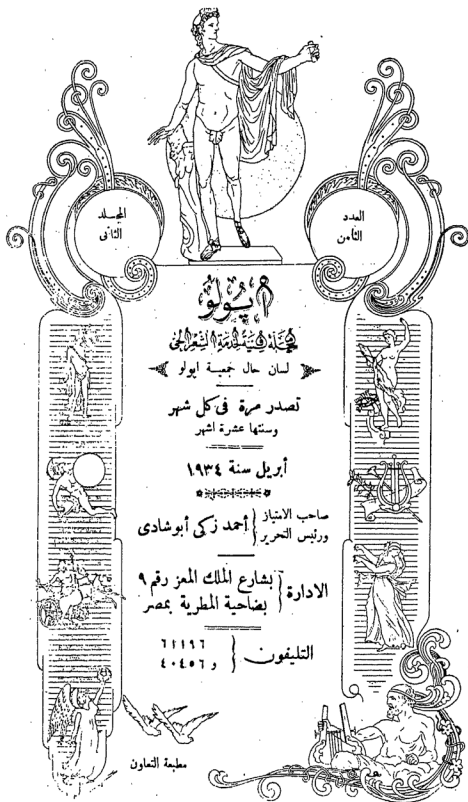 العدد
الثامن
المجلد
الثانى
أپولو
مجلة فنية لخدمة الشعر الحى
لسان حال جمعية ابولو
تصدر مرة فى كل شهر
وسنتها عشرة اشهر
أبريل سنة ١٩٣٤
صاحب الامتياز
ورئيس التحرير { أحمد زكى أبو شادى
الادارة { بشارع الملك المعز رقم ٩
بضاحية المطرية بمصر
التليفون { ٦١١٩٦
و ٤٠٤٥٦
مطبعة التعاون